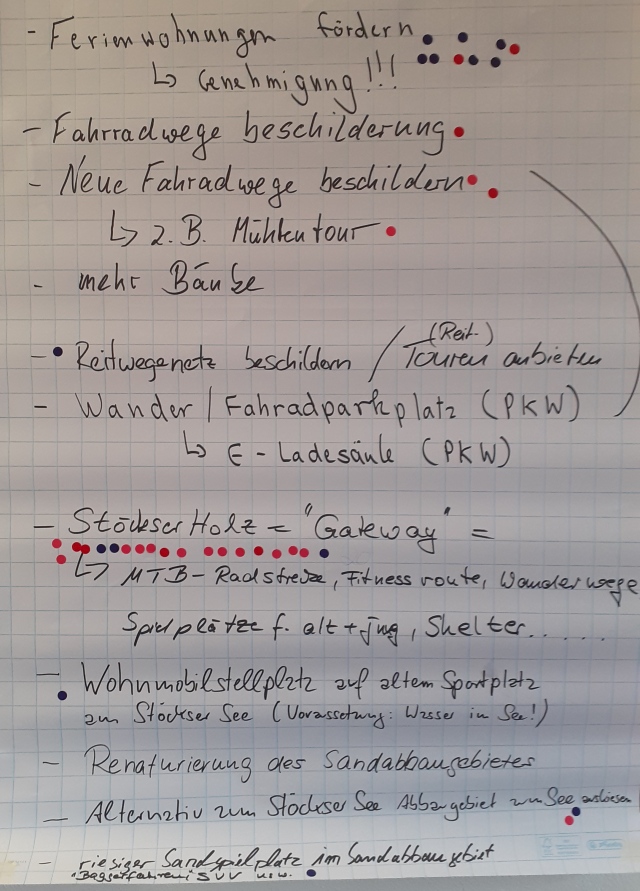 - Ferienwohnungen fördern
↳ Genehmigung!!!
- Fahrradwege beschilderung
- Neue Fahradwege beschildern
↳ z.B. Mühlentour
- mehr Bänke
- Reitwegenetz beschildern / (Reit-) Touren anbieten
- Wander / Fahradparkplatz (PKW)
↳ E-Ladesäule (PKW)
- Stöckser Holz = "Gateway" =
↳ MTB-Radstrecke, Fitnessroute, Wanderwege
Spielplätze f. alt + jung, Shelter......
- Wohnmobilstellplatz auf altem Sportplatz
am Stöckser See (Vorassetzung: Wasser im See!)
- Renaturierung des Sandabbaugebietes
- Alternativ zum Stöckser See Abbaugebiet zum See
- riesiger Sandspielplatz im Sandabbaugebiet
"Baggerfahren" SUV usw.